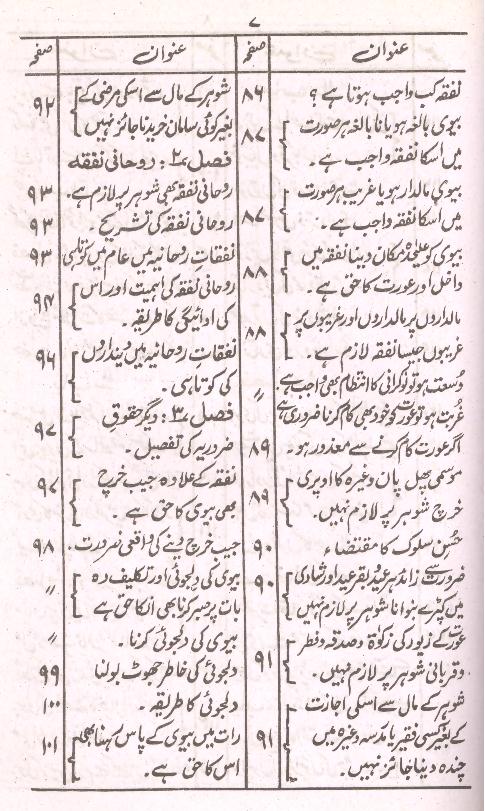 ۷
عنوان صفحہ
نفقہ کب واجب ہوتا ہے؟ ۸۶
بیوی بالغہ ہو یا نا بالغہ ہر صورت
میں اُسکا نفقہ واجب ہے۔ ۸۷
بیوی مالدار ہو یا غریب ہر صورت
میں اُسکا نفقہ واجب ہے۔ ۸۷
بیوی کو علیٰحدہ مکان دینا نفقہ میں
داخل اور عورت کا حق ہے۔ ۸۸
مالداروں پر مالداروں اور غریبوں پر
غریبوں جیسا نفقہ لازم ہے۔ ۸۸
وُسعت ہو تو نوکرانی کا انتظام بھی واجب ہے۔ ״
غُربت ہو تو عورت کو خود بھی کام کرنا ضروری ہے
اگر عورت کام کرنے سے معذور ہو۔ ۸۹
موسمی پھل پان وغیرہ کا اوپری
خرچ شوہر پر لازم نہیں۔ ۸۹
حُسنِ سلوک کا مقتضاء ۹۰
ضرورت سے زائد ہر عید و بقر عید اور شادی
میں کپڑے بنوانا شوہر پر لازم نہیں ۹۰
عورت کے زیور کی زکوٰۃ و صدقۂ فطر
و قربانی شوہر پر لازم نہیں۔ ۹۱
شوہر کے مال سے اسکی اجازت
کے بغیر کسی فقیر یا مدرسہ وغیرہ میں
چندہ دینا جائز نہیں۔ ۹۱
عنوان صفحہ
شوہر کے مال سے اسکی مرضی کے
بغیر کوئی سامان خریدنا جائز نہیں ۹۲
فصل ۲: روحانی نفقہ
روحانی نفقہ بھی شوہر پر لازم ہے۔ ۹۳
روحانی نفقہ کی تشریح۔ ۹۳
نفقاتِ روحانیہ میں عام میں کوتاہی ۹۳
روحانی نفقہ کی اہمیت اور اس
کی ادائیگی کا طریقہ۔ ۹۴
نفقاتِ روحانیہ میں دینداروں
کی کوتاہی۔ ۹۶
فصل ۳: دیگر حقوق
ضروریہ کی تفصیل۔ ۹۷
نفقہ کے علاوہ جیب خرچ
بھی بیوی کا حق ہے۔ ۹۷
جیب خرچ دینے کی واقعی ضرورت۔ ۹۸
بیوی کی دلجوئی اور تکلیف دہ
بات پر صبر کرنا بھی اُنکا حق ہے ״
بیوی کی دلجوئی کرنا۔ ״
دلجوئی کی خاطر جھوٹ بولنا ۹۹
دلجوئی کا طریقہ۔ ۱۰۰
رات میں بیوی کے پاس رہنا بھی
اس کا حق ہے۔ ۱۰۱